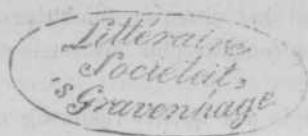 Littéraire
Societeit,
'sGravenhage